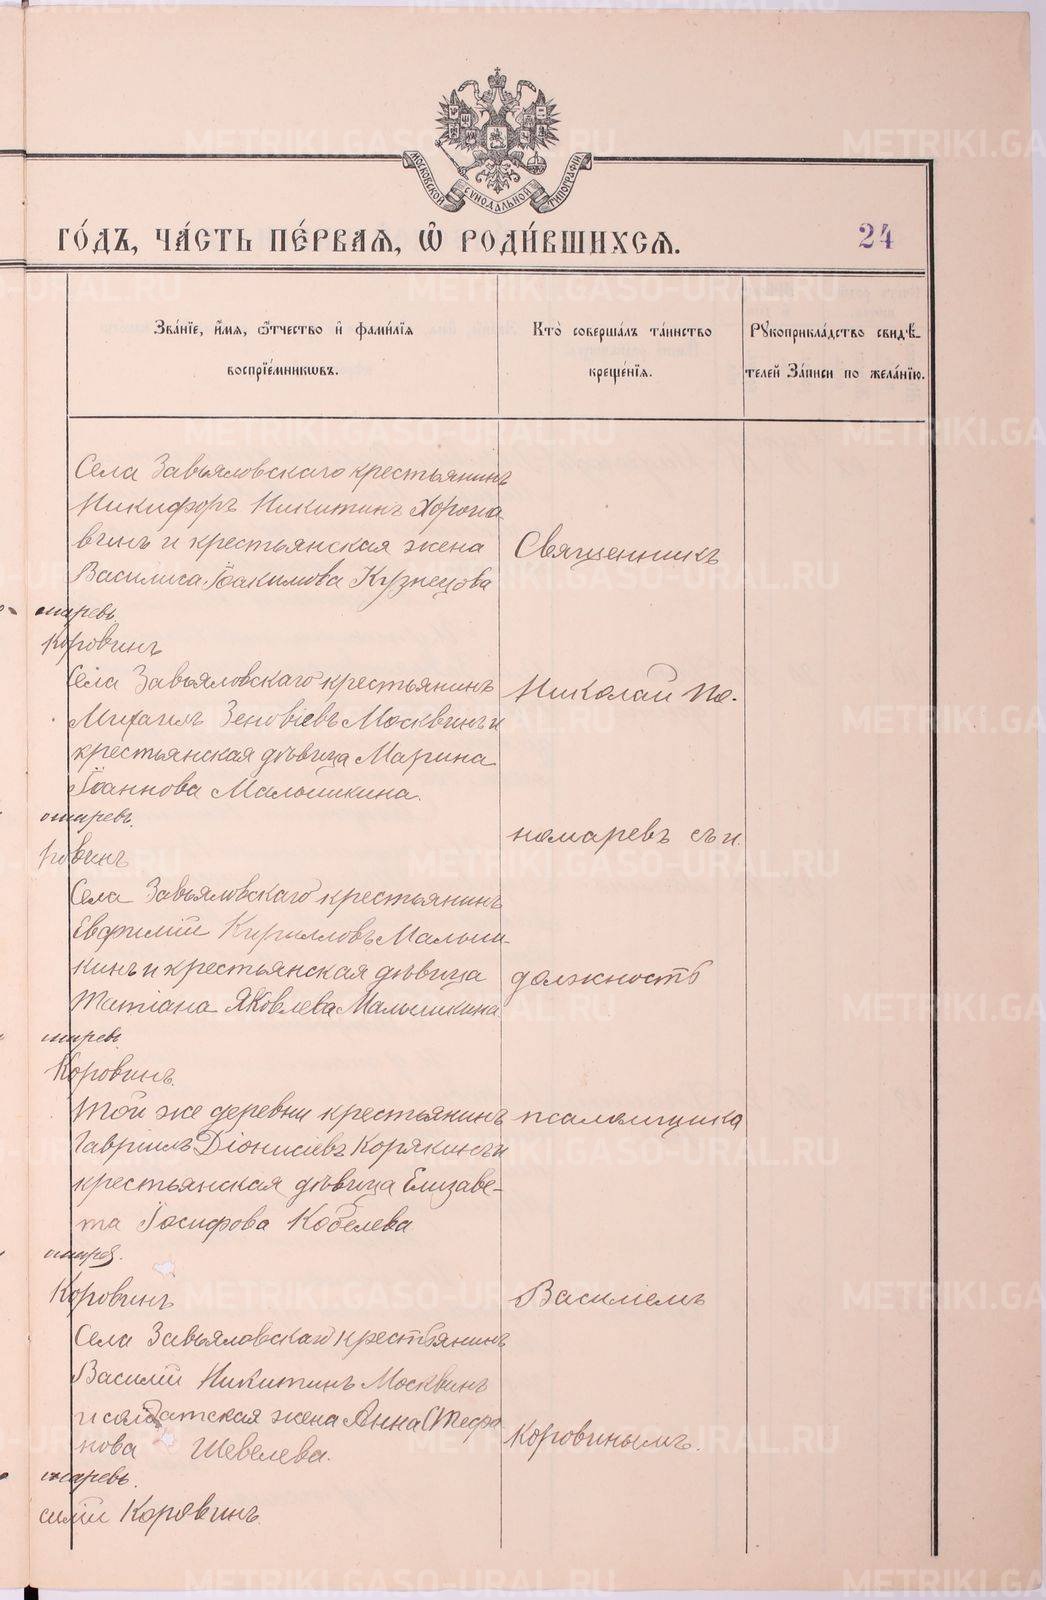 МОСКОВСКОЙ СѴНОДАЛЬНОЙ ТИПОГРАФІИ
ГО́ДЪ, ЧА́СТЬ ПЕ́РВАѦ, Ѡ҆ РОДИ́ВШИХСѦ.
24
Зва́нїе, и҆́мѧ, ѻ҆́тчество и҆ фами́лїѧ
воспрїе́мникѡвъ.
Кто̀ соверша́лъ та́инство
креще́нїѧ.
Рꙋкоприкла́дство свидѣ́-
телей За́писи по жела́нїю.
Села Завьяловскаго крестьянинъ
Никифоръ Никитинъ Хороша
винъ и крестьянская жена
Василиса Іоакимова Кузнецова
Священникъ
омаревъ.
Коровинъ
Села Завьяловскаго крестьянинъ
Михаилъ Зеновіевъ Москвинъ и
крестьянская дѣвица Марина
Іоаннова Малышкина.
Николай По-
омаревъ.
ровинъ
номаревъ съ и.
Села Завьяловскаго крестьянинъ
Евфимій Кирилловъ Малыш-
кинъ и крестьянская дѣвица
Татіана Яковлева Малышкина
должность
омаревъ.
Коровинъ.
Той же деревни крестьянинъ
Гавріилъ Діонисіевъ Корякинъ и
крестьянская дѣвица Елизаве-
та Іосифова Кобелева
псаломщика
омарев.
Коровинъ
Василіемъ
Села Завьяловскаго крестьянинъ
Василій Никитинъ Москвинъ
и солдатская жена Анна Стефа
нова Шевелева.
Коровинымъ.
омаревъ.
силій Коровинъ.
METRIKI.GASO-URAL.RU